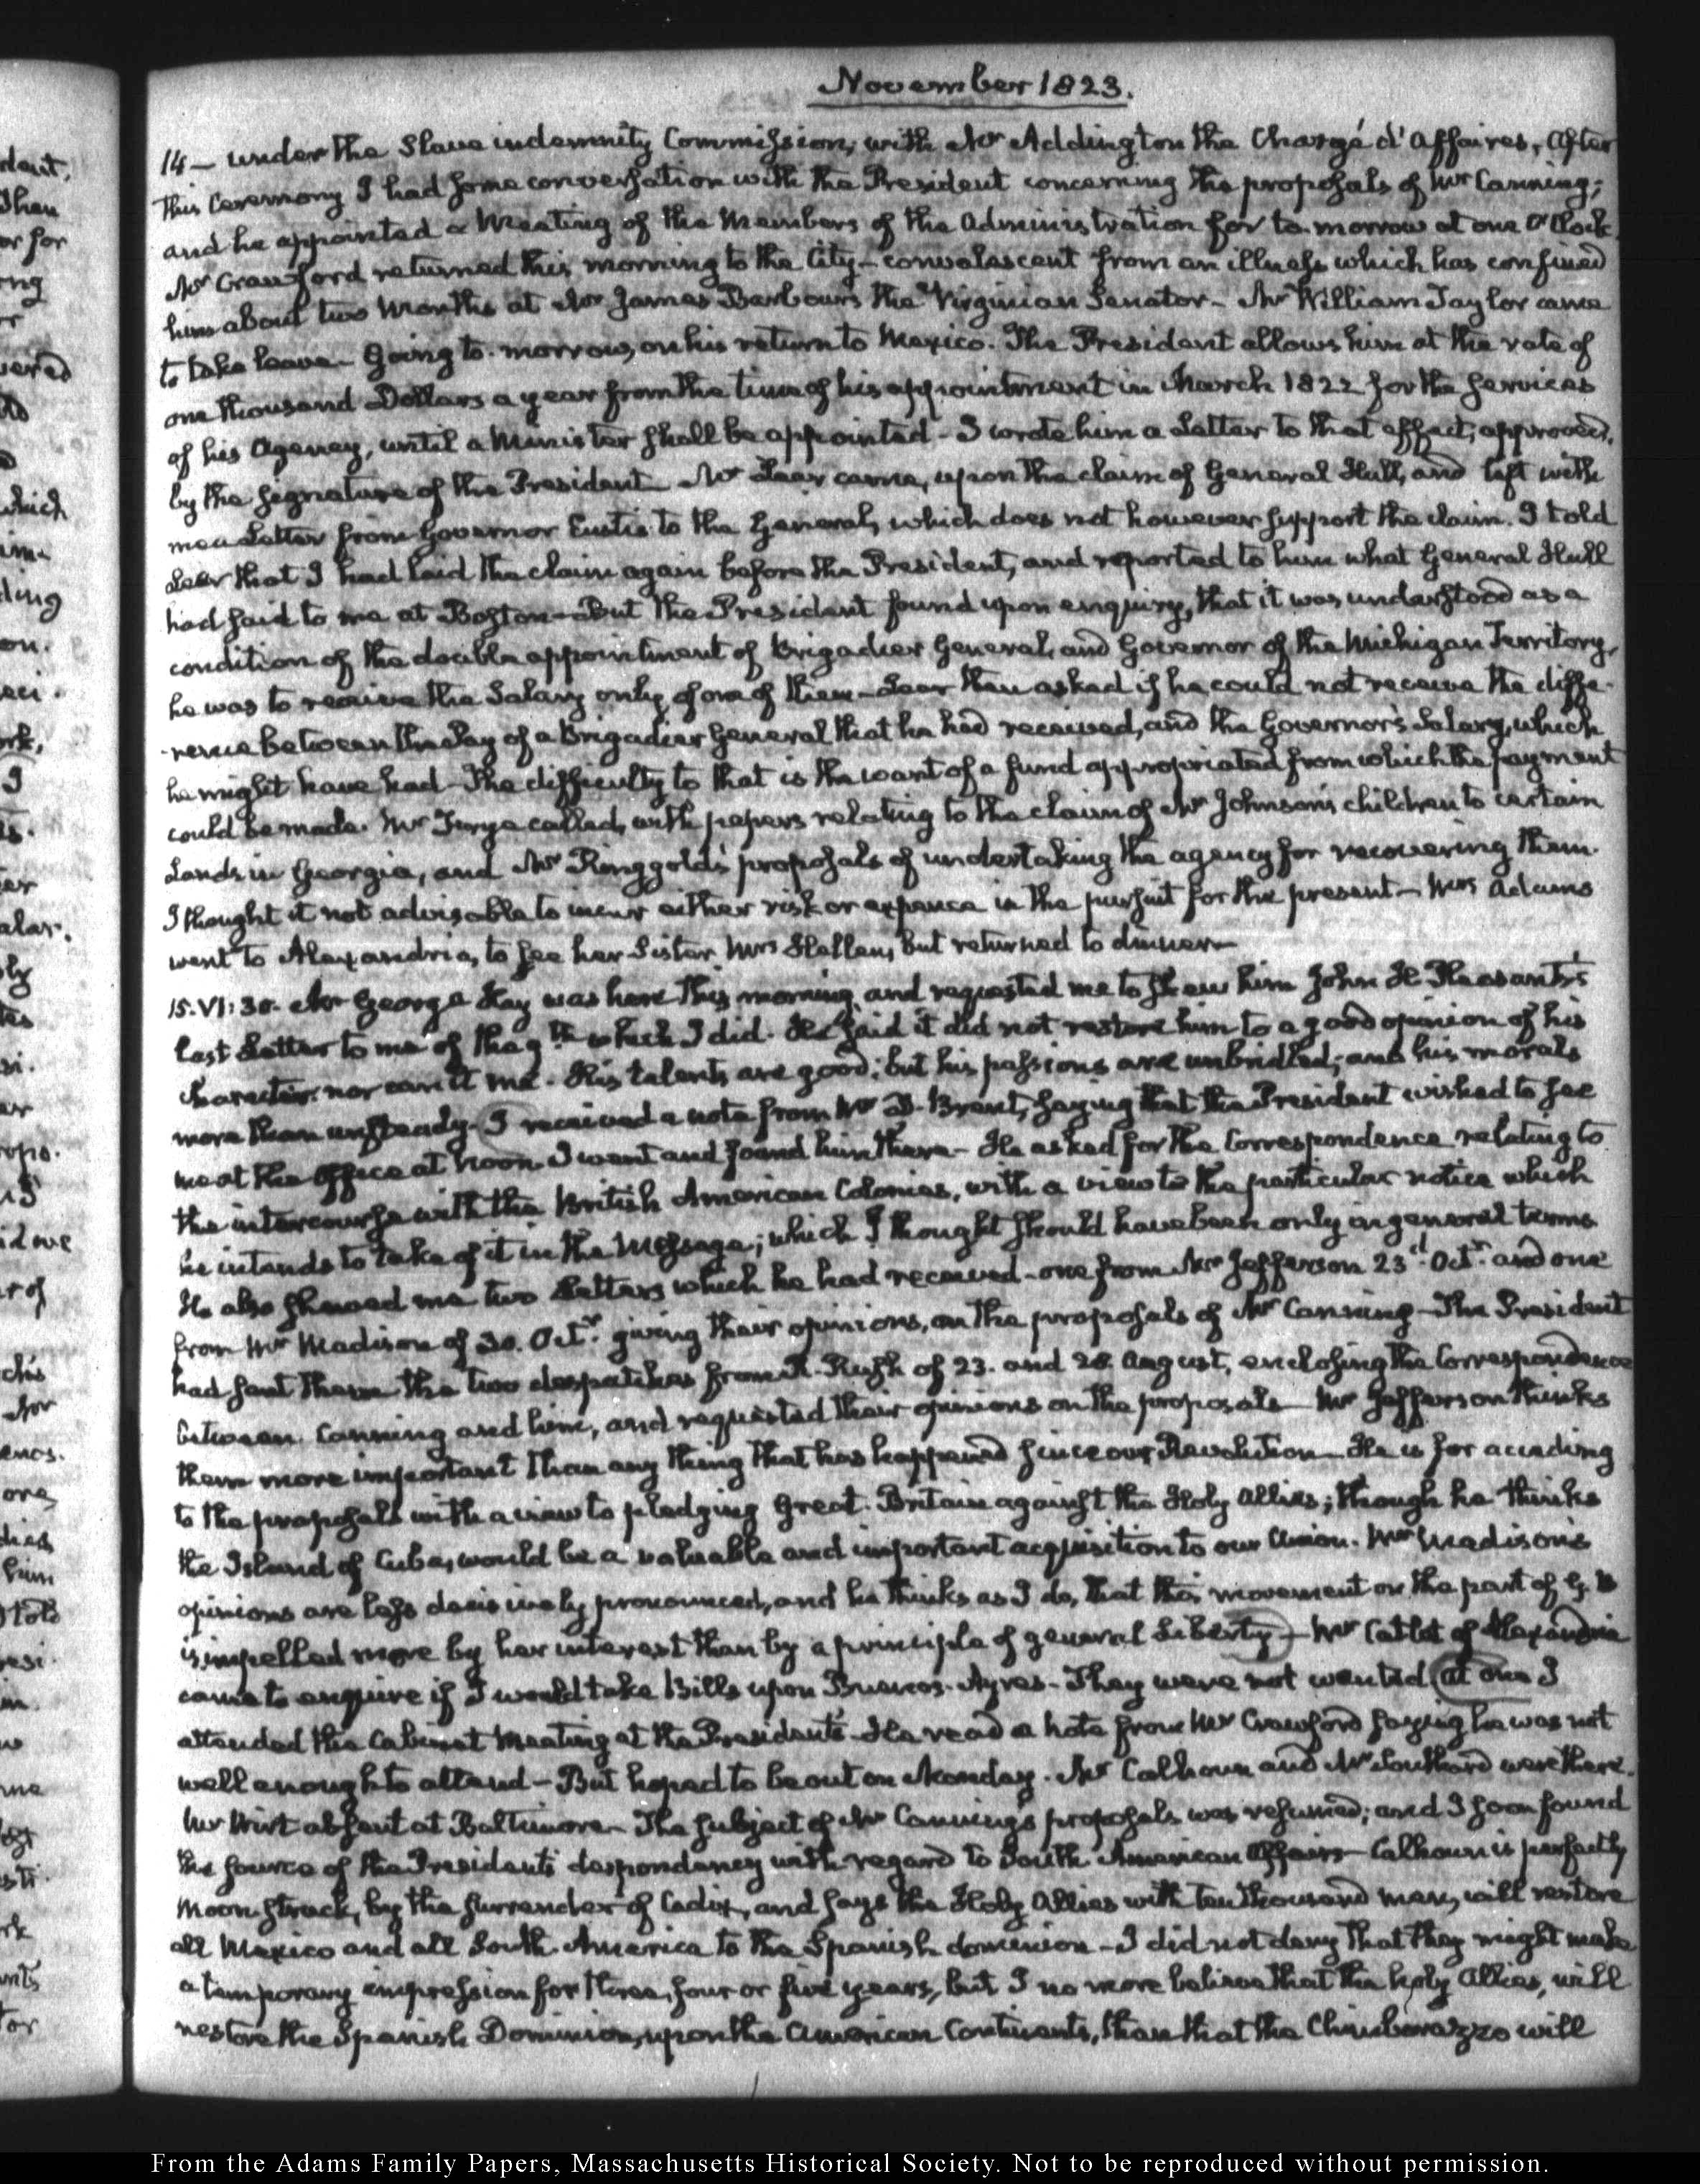 November 1823.
14 – under the Slave indemnity Commission, with Mr Addington the Chargé d'Affaires, After
this Ceremony I had some conversation with the President concerning the proposals of Mr Canning;
and he appointed a Meeting of the Members of the Administration for to-morrow at one O'Clock
Mr Crawford returned this morning to the City – convalescent from an illness which has confined
him about two Months at Mr James Barbour's the Virginian Senator – Mr William Taylor came
to take leave – Going to-morrow, on his return to Mexico. The President allows him at the rate of
one thousand Dollars a year from the time of his appointment in March 1822 for the services
of his Agency, until a Minister shall be appointed – I wrote him a Letter to that effect; approved,
by the signature of the President – Mr Lear came, upon the claim of General Hull, and left with
me a Letter from Governor Eustis to the General, which does not however support the claim. I told
Lear that I had laid the claim again before the President, and reported to him what General Hull
had said to me at Boston – But the President found upon enquiry, that it was understood as a
condition of the double appointment of Brigadier General, and Governor of the Michigan Territory,
he was to receive the Salary only of one of them – Lear then asked if he could not receive the diffe-
-rence between the Pay of a Brigadier General that he had received, and the Governor's Salary, which
he might have had – The difficulty to that is the want of a fund appropriated from which the payment
could be made. Mr Frye called, with papers relating to the claim of Mr Johnson's children to certain
Lands in Georgia, and Mr Ringgold's proposals of undertaking the agency for recovering them.
I thought it not advisable to incur either risk or expence in the pursuit for the present – Mrs Adams
went to Alexandria, to see her Sister Mrs Hellen, but returned to dinner –
15. VI:30. Mr George Hay was here this morning and requested me to shew him John H. Pleasants's
last Letter to me of the 9th which I did. He said it did not restore him to a good opinion of his
character. nor can it me. His talents are good; but his passions are unbridled; and his morals
more than unsteady. I received a note from Mr D. Brent, saying that the President wished to see
me at the Office at Noon. I went and found him there – He asked for the Correspondence relating to
the intercourse with the British American Colonies, with a view to the particular notice which
he intends to take of it in the Message; which I thought should have been only in general terms
He also shewed me two Letters which he had received – one from Mr Jefferson 23d Octr and one
from Mr Madison of 30. Octr giving their opinions, on the proposals of Mr Canning – The President
had sent them the two despatches from R. Rush of 23. and 28. August, enclosing the Correspondence
between Canning and him, and requested their opinions on the proposals – Mr Jefferson thinks
them more important than any thing that has happened since our Revolution – He is for acceding
to the proposals with a view to pledging Great-Britain against the Holy Allies; though he thinks
the Island of Cuba, would be a valuable and important acquisition to our Union. Mr Madison's
opinions are less decisively pronounced, and he thinks as I do, that this movement on the part of G. B
is impelled more by her interest than by a principle of general Liberty – Mr Catlet of Alexandria
came to enquire if I would take Bills upon Buenos-Ayres – They were not wanted at one I
attended the Cabinet Meeting at the President's – He read a note from Mr Crawford saying he was not
well enough to attend – But hoped to be out on Monday. Mr Calhoun and Mr Southard were there.
Mr Wirt absent at Baltimore – The subject of Mr Canning's proposals was resumed; and I soon found
the source of the President's despondency with regard to South American Affairs – Calhoun is perfectly
moon-struck, by the surrender of Cadiz, and says the Holy Allies with ten thousand men, will restore
all Mexico and all South America to the Spanish dominion – I did not deny that they might make
a temporary impression for three, four or five years, but I no more believe that the holy Allies, will
restore the Spanish Dominion, upon the American Continents, than that the Chimborazzo will
From the Adams Family Papers, Massachusetts Historical Society. Not to be reproduced without permission.